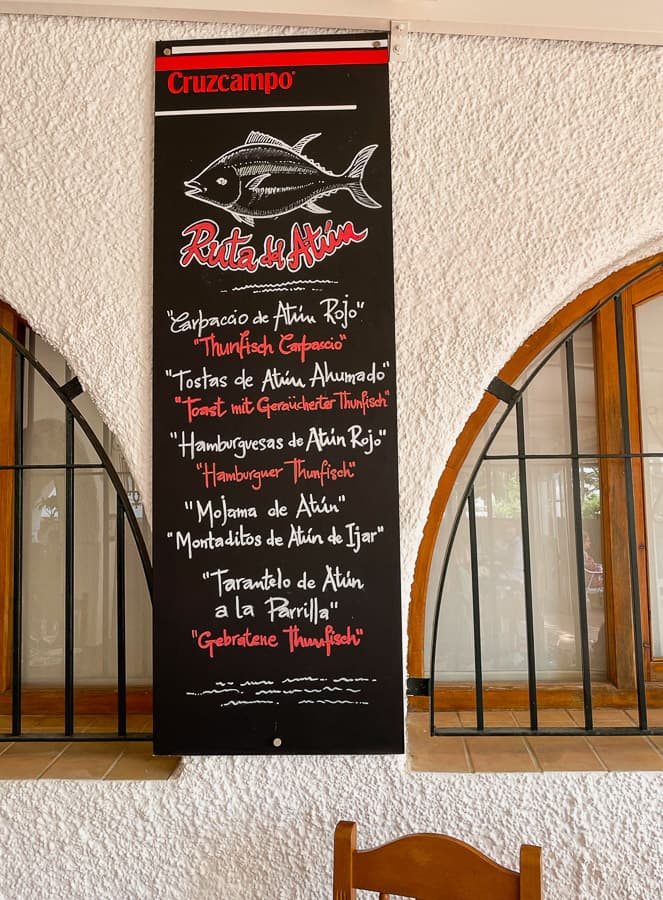 Cruzcampo
Ruta del Atún
"Carpaccio de Atún Rojo"
"Thunfisch Carpaccio"
"Tostas de Atún Ahumado"
"Toast mit Geraücherter Thunfisch"
"Hamburguesas de Atún Rojo"
"Hamburguer Thunfisch"
"Mojama de Atún"
"Montaditos de Atún de Ijar"
"Tarantelo de Atún
a la Parrilla"
"Gebratene Thunfisch"